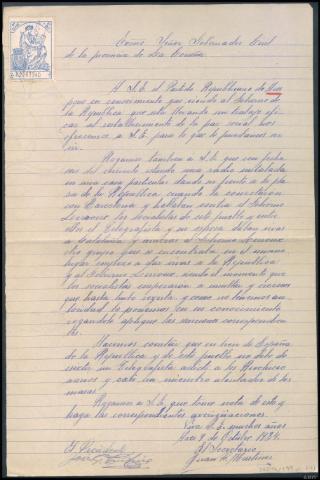 Excmo Señor Gobernador Civil
de la provincia de La Coruña
A S.E. el Partido Republicano de
pone en conocimiento que siendo el Gobierno de
la República que esta llevando un trabajo efi-
caz al restablecimiento de la paz social nos
ofrecemos a S.E. para lo que le pudiéramos ser-
vir.
Rogamos tambien a S.E. que con fecha
del corriente dando una radio instalada
en una casa particular dando su frente a la pla-
za de la República, cuando la conectaban
con Barcelona y hablaban contra el Gobierno
Lerroux los socialistas de este pueblo y entre
ellos el Telegrafista y su esposa daban vivas
a Cataluña y mueras al Gobierno Lerroux
otro grupo que se encontraba en el mismo
lugar empezó a dar vivas a la República
y al Gobierno Lerroux, siendo el momento que
los socialistas empezaron a insultar y
que hasta hubo y como no tenemos au-
toridad lo ponemos en su conocimiento
rogandole aplique las sanciones correspondien-
tes.
Hacemos constar que en bien de España
de la República y de este pueblo no debe de
existir un Telegrafista adicto a los
y cate un ministro alentador de las
masas.
Rogamos a S.E. que tome nota de esto y
haga las correspondientes averiguaciones.
Viva S.E. muchos años
8 de Octubre 1934.
El Presidente
El Secretario
Juan A. Martinez